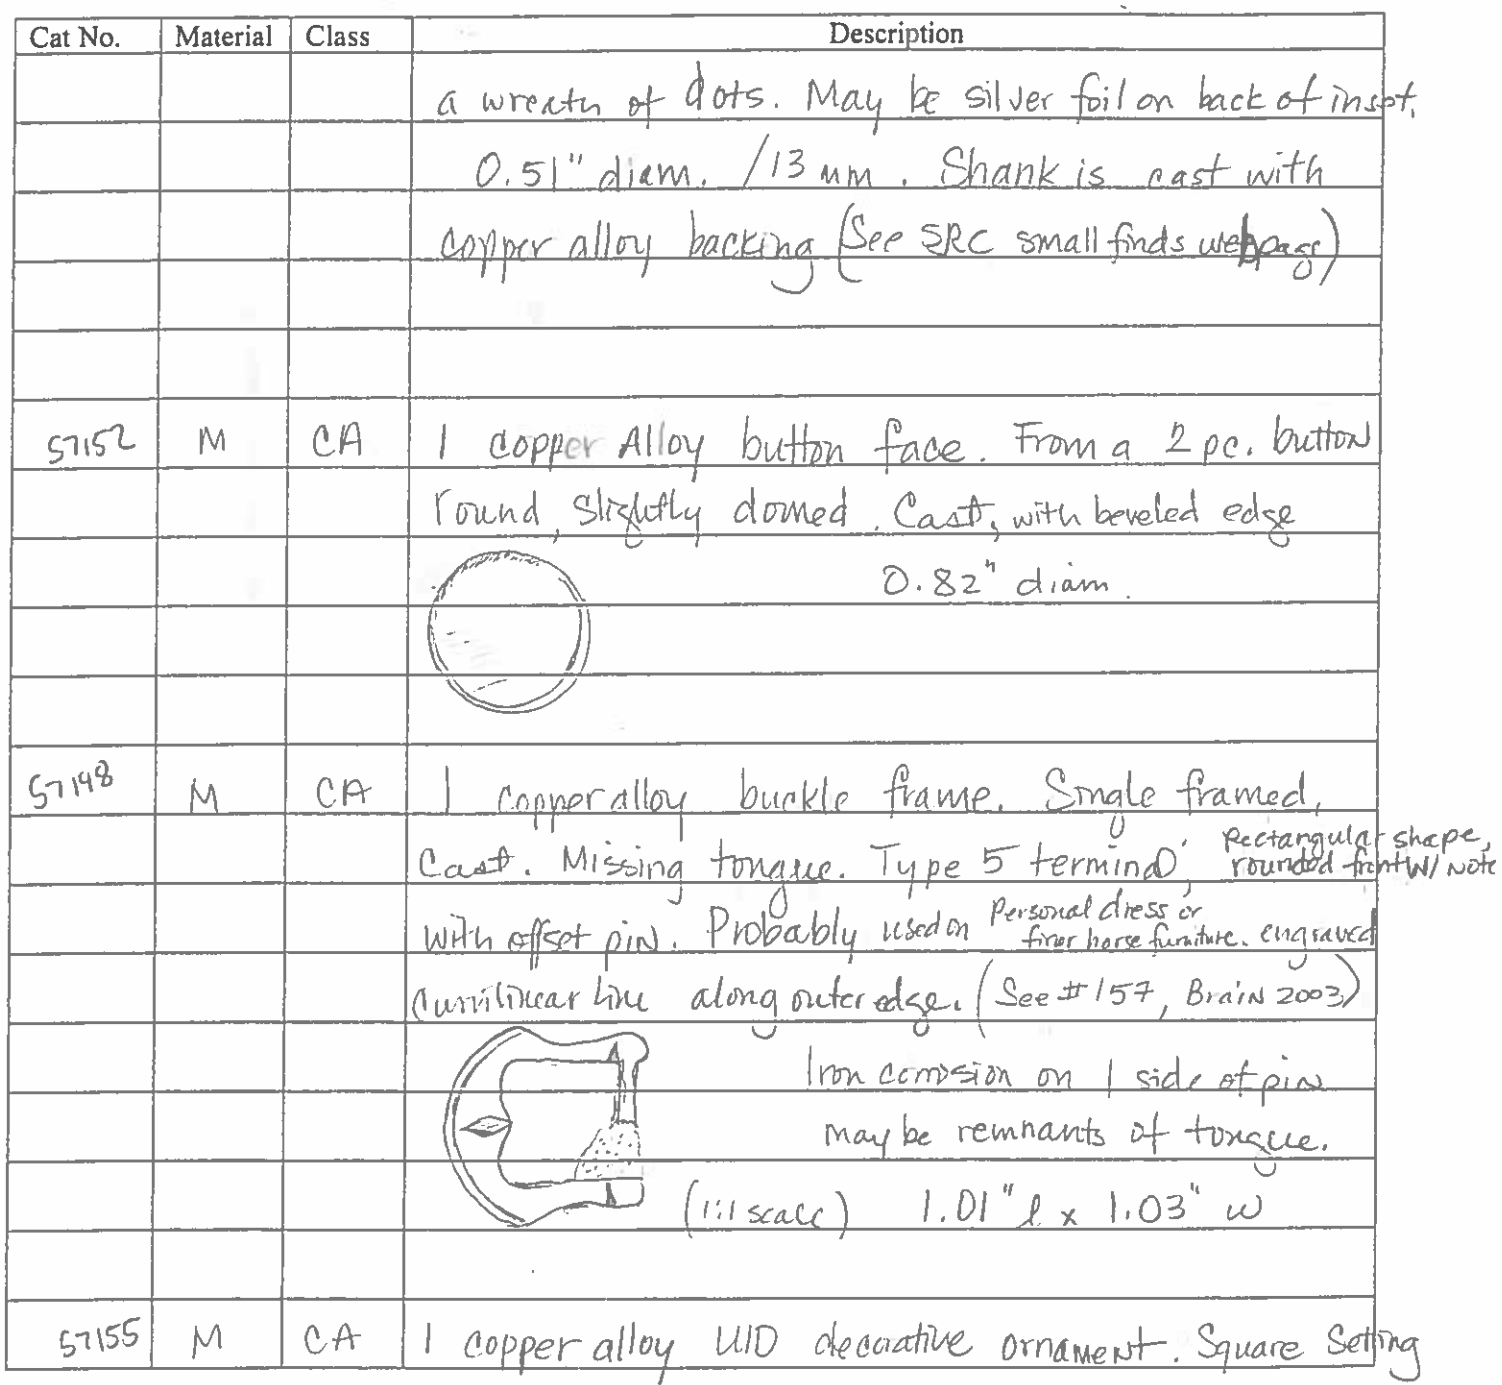 Cat No. Material Class Description
a wreath of dots. May be silver foil on back of inset.
0.51" diam. /13 mm. Shank is cast with
copper alloy backing (See SRC small finds webpage)
57152 M CA 1 copper Alloy button face. From a 2 pc. button
round, slightly domed. Cast, with beveled edge
0.82" diam.
57148 M CA 1 copper alloy buckle frame. Single framed,
Cast. Missing tongue. Type 5 terminal; Rectangular shape,
rounded front w/ note
with offset pin. Probably used on Personal dress or
finer horse furniture. engraved
curvilinear line along outer edge. (See #157, Brain 2003)
Iron corrosion on 1 side of pin
may be remnants of tongue.
(1:1 scale) 1.01" l x 1.03" w
57155 M CA 1 copper alloy UID decorative ornament. Square Setting